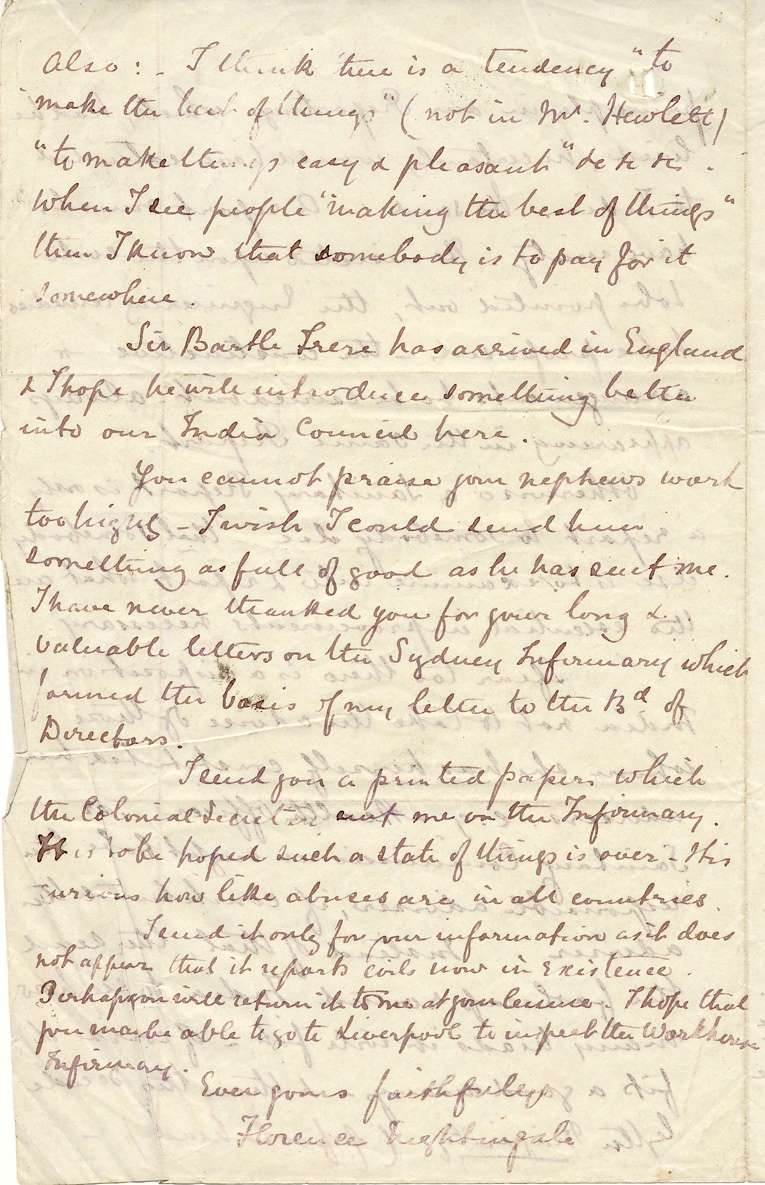 Also : - I think there is a tendency "to
make the best of things" (not in Mr. Hewlett)
"to make things easy & pleasant" &c &c &c -
When I see people "making the best of things"
then I know that somebody is to pay for it
somewhere.
Sir Bartle Frere has arrived in England
& I hope he will introduce something better
into our India Council here.
You cannot praise your nephews work
too highly - I wish I could send him
something as full of good as he has sent me.
I have never thanked you for your long &
valuable letters on the Sydney Infirmary which
formed the basis of my letter to the Bd of
Directors.
I send you a printed paper which
the Colonial Secretary sent me on the Infirmary.
It is to be hoped such a state of things is over - It is
curious how like abuses are in all countries.
I send it only for your information as it does
not appear that it reports evils now in existence.
Perhaps you will return it to me at your leisure. I hope that
you may be able to go to Liverpool to inspect the Workhouse
Infirmary.
Ever yours faithfully
Florence Nightingale